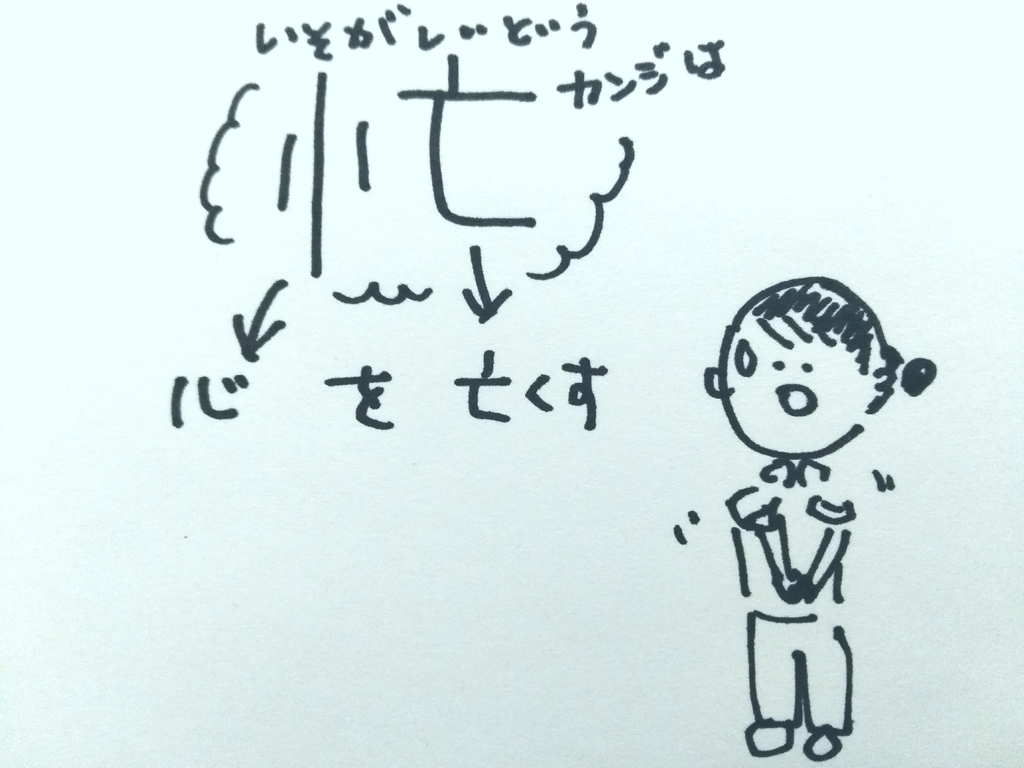 いそがしいという
カンジは
忙
心を亡くす